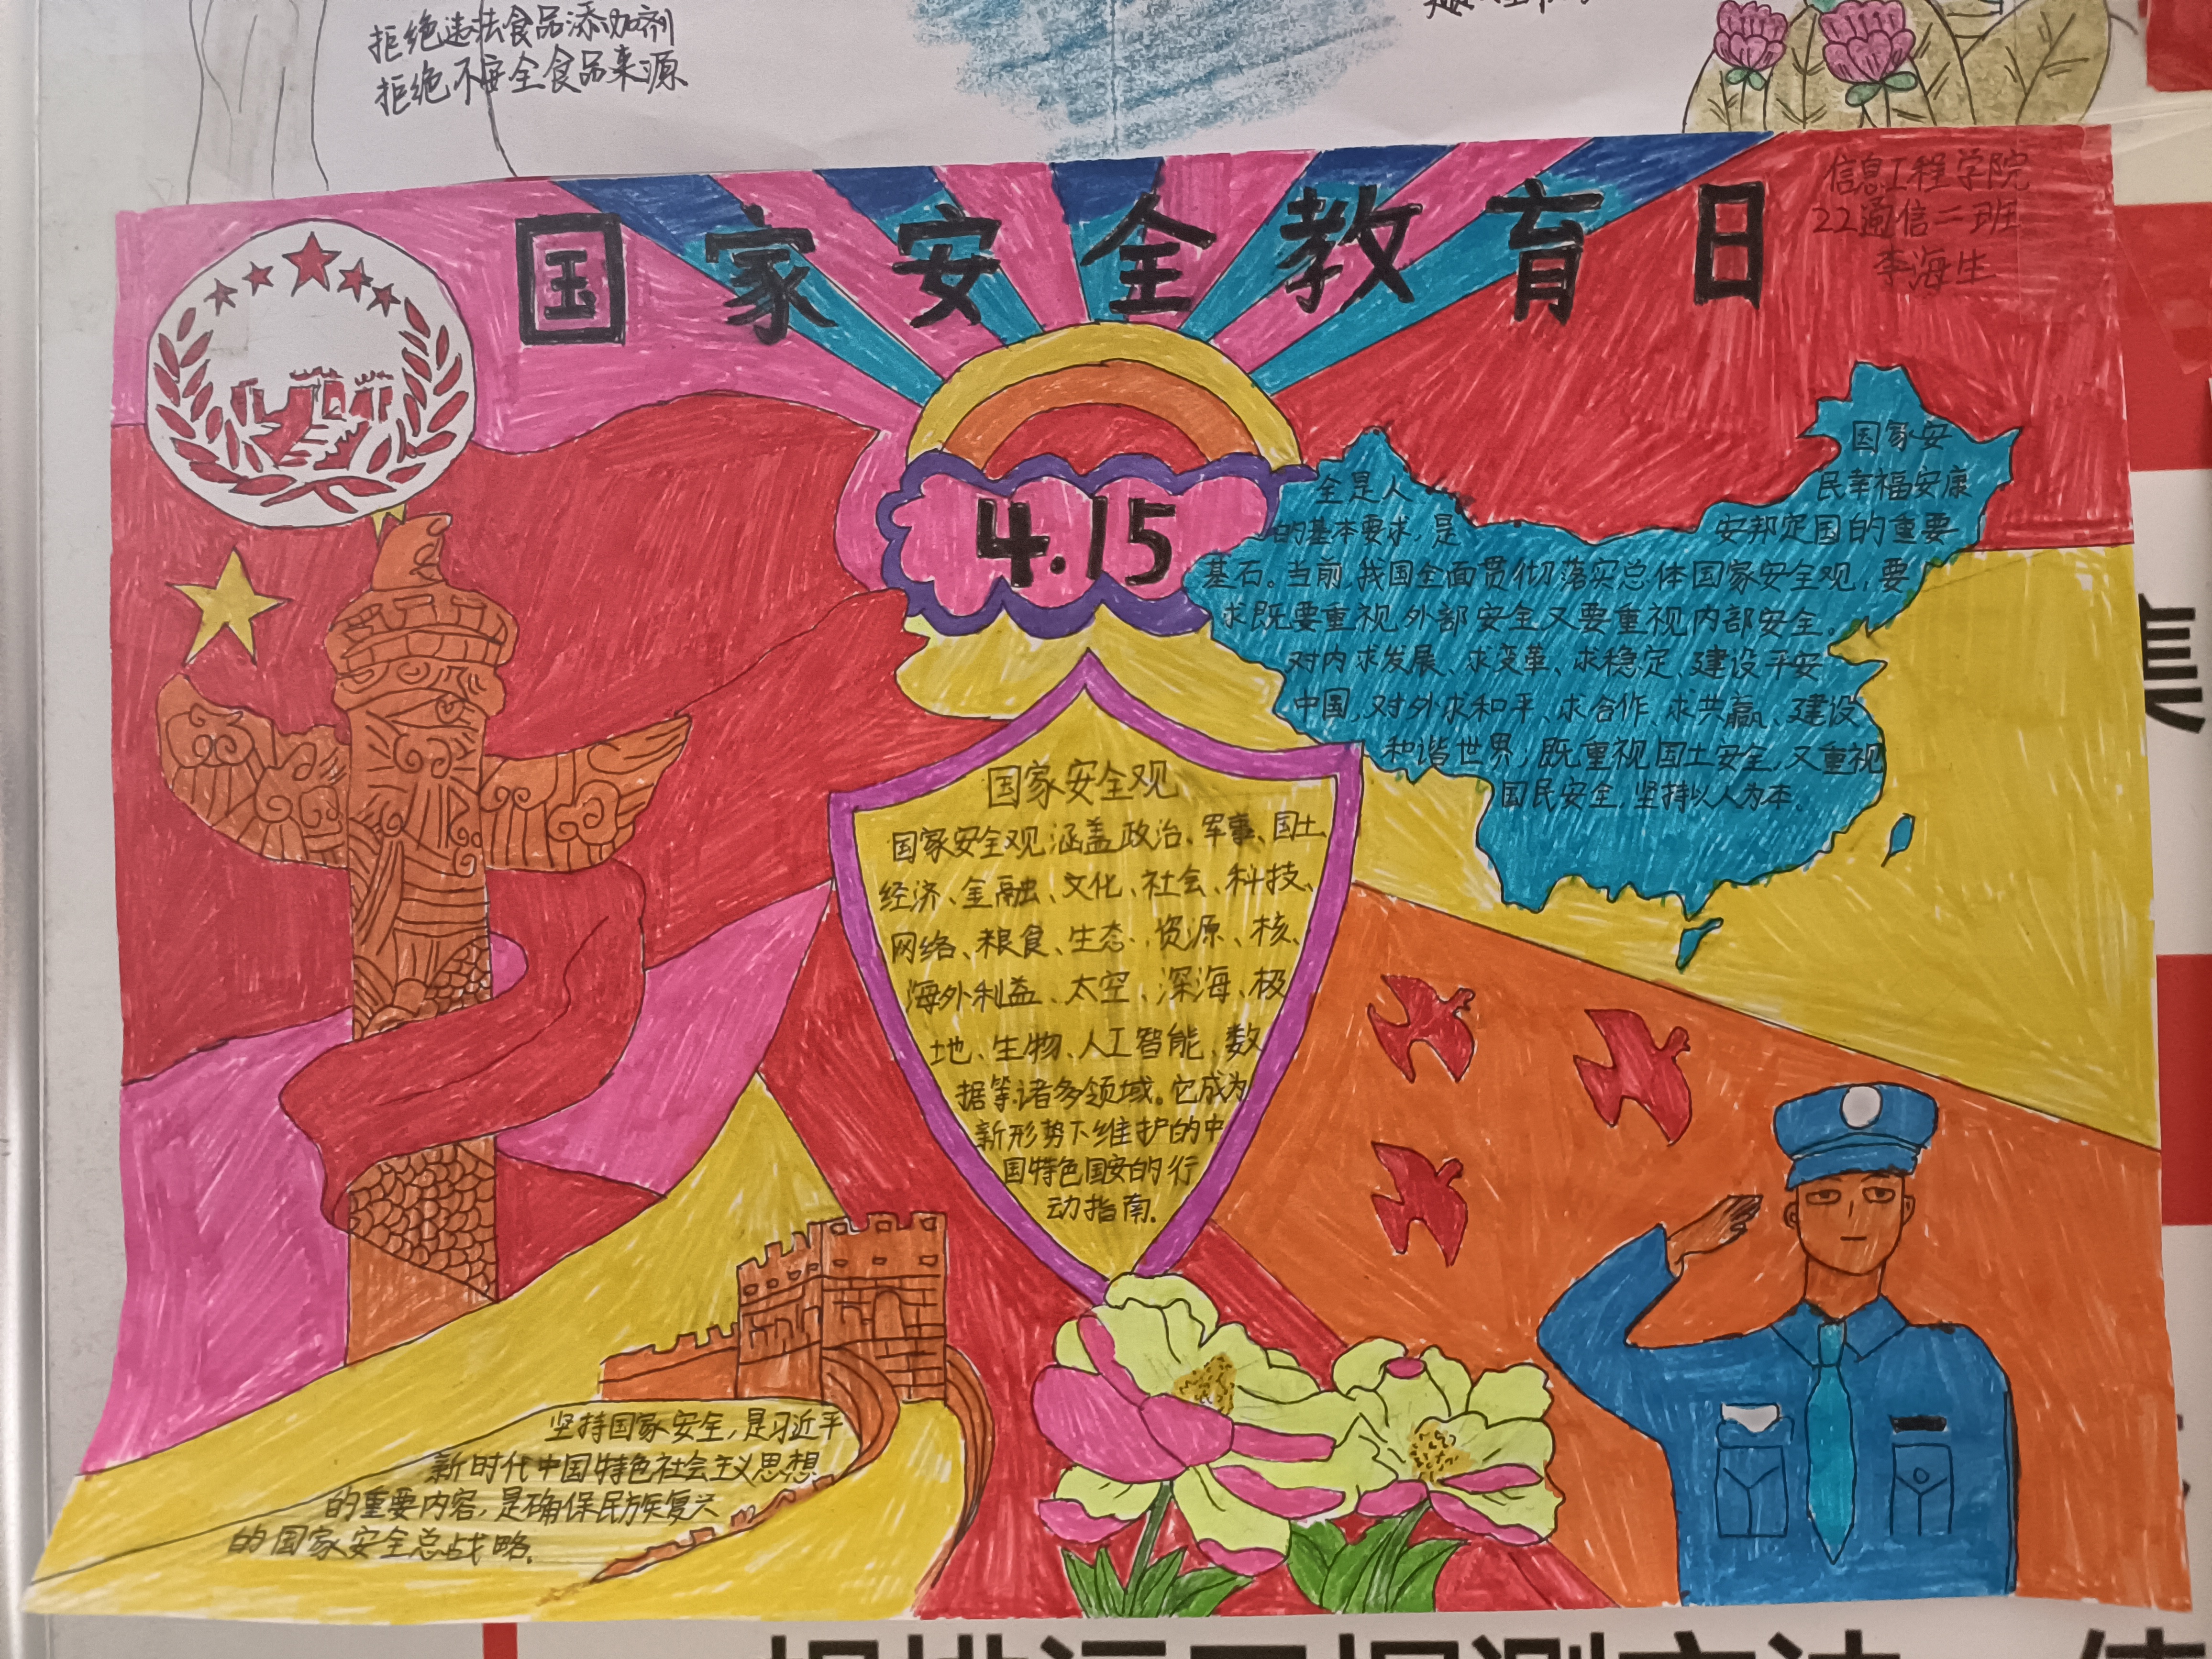 拒绝违法食品添加剂
拒绝不安全食品来源
国家安全教育日
信息工程学院
22通信二班
李海生
4.15
国家安
全是人民幸福安康
的基本要求,是安邦定国的重要
基石。当前,我国全面贯彻落实总体国家安全观,要
求既要重视外部安全又要重视内部安全。
对内求发展、求变革、求稳定、建设平安
中国,对外求和平、求合作、求共赢、建设
和谐世界;既重视国土安全,又重视
国民安全,坚持以人为本。
国家安全观
国家安全观涵盖政治、军事、国土、
经济、金融、文化、社会、科技、
网络、粮食、生态、资源、核、
海外利益、太空、深海、极
地、生物、人工智能、数
据等诸多领域。它成为
新形势下维护的中
国特色国安的行
动指南.
坚持国家安全,是习近平
新时代中国特色社会主义思想
的重要内容,是确保民族复兴
的国家安全总战略.
集